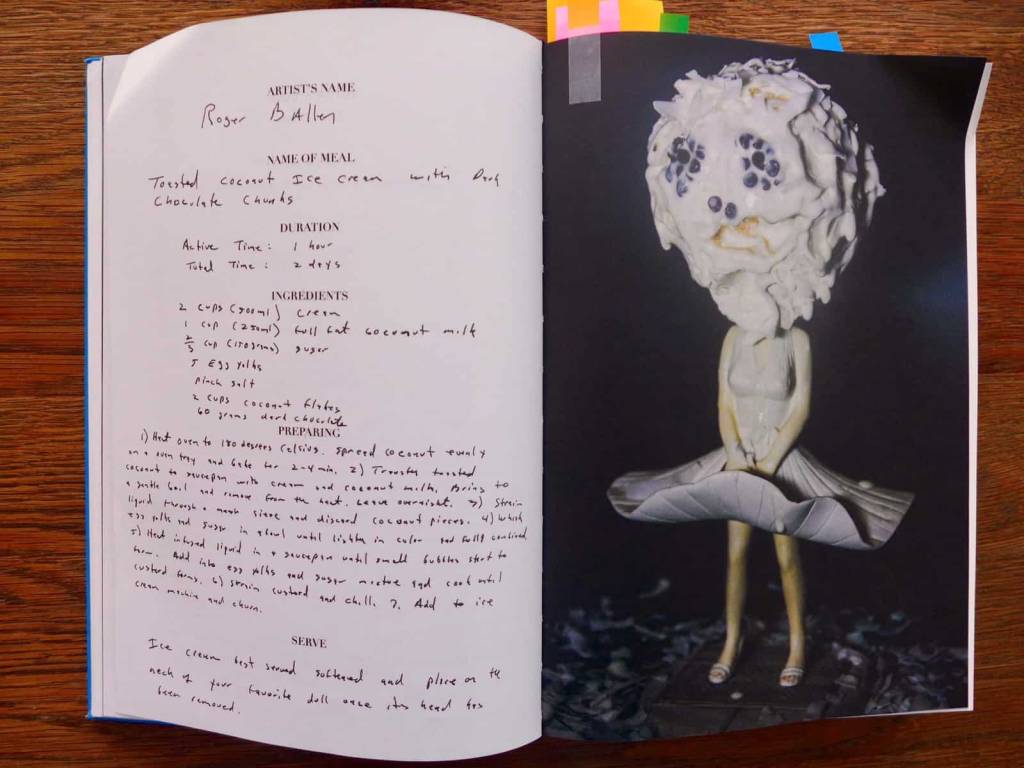 ARTIST'S NAME
Roger Ballen
NAME OF MEAL
Toasted coconut Ice cream with Dark
Chocolate Chunks
DURATION
Active Time: 1 hour
Total Time: 2 days
INGREDIENTS
2 cups (500ml) cream
1 cup (250ml) full fat coconut milk
2/3 cup (150grams) sugar
5 Egg yolks
pinch salt
2 cups coconut flakes
60 grams dark chocolate
PREPARING
1) Heat oven to 180 degrees Celsius. Spread coconut evenly
on a oven tray and bake for 2-4 min. 2) Transfer toasted
coconut to saucepan with cream and coconut milk. Bring to
a gentle boil and remove from the heat. Leave overnight. 3) Strain
liquid through a mesh sieve and discard coconut pieces. 4) Whisk
egg yolks and sugar in a bowl until lighter in color and fully combined.
5) Heat infused liquid in a saucepan until small bubbles start to
form. Add into egg yolks and sugar mixture and cook until
custard forms. 6) Strain custard and chill. 7. Add to ice
cream machine and churn.
SERVE
Ice cream best served softened and place on the
neck of your favorite doll once its head has
been removed.